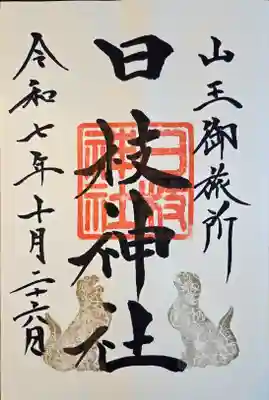 山王御旅所
日枝神社
令和七年十月二十六日
日枝
神社